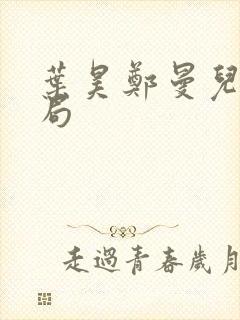 葉昊鄭曼兒
局
走過青春歲月